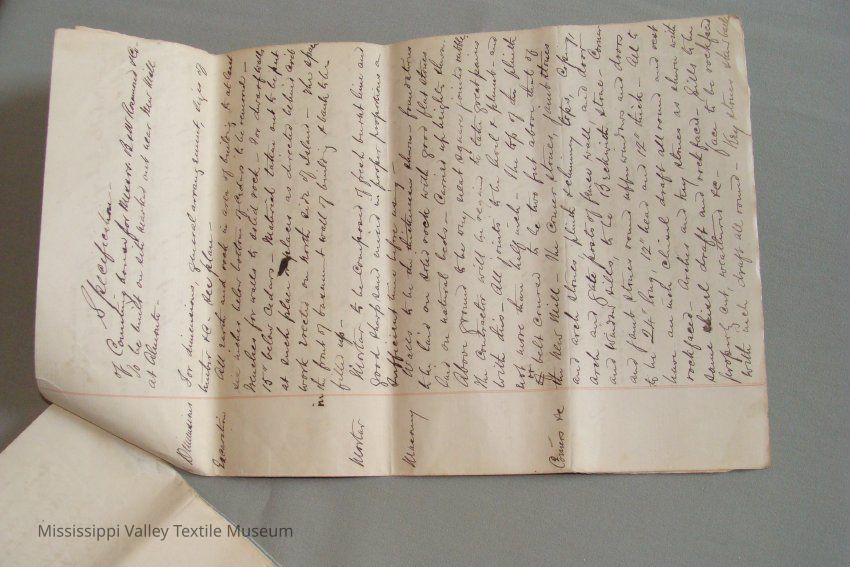 Specification
of Counting house for Messrs B & W Rosamond & Co.
to be built on site marked out near New Mill
at Almonte.
Dimensions For dimensions, general arrangement, sizes of
timber &c see plan.
Excavation All earth and rock in area of building to at least
six inches below bottom of Joists to be removed -
trenches for walls to solid rock - for dwarf walls
15" below Joists - Material taken out to be put
at such places as directed behind
work on North side of Island - The space
in front of basement wall of building & bank to be
filled up -
Mortar Mortar to be composed of fresh burnt lime and
good sharp sand mixed in proper proportions a
sufficient time before using -
Masonry Walls to be the thicknesses shown - foundations
to be laid on solid rock with good flat stones
laid on natural beds - Carried up heights shown.
Above ground to be very neat square jointed rubble
the Contractor will be required to take great pains
with this - All joints to be level & plumb - and
not more than half inch - The top of the plinth
or belt course to be two feet above that of
the New Mill The Corner stones, jamb stones
Corners &c and arch stones plinth & chimney tops, caps of
arch and gate posts of fence wall and door
and Window sills, to be Beckwith stone - Corners
and jamb stones round upper windows and doors
to be 24" long, 12" head and 12" thick - All to
have an inch chisel draft all round and rest
rockfaced - Arches and key stones as shown with
same chisel draft and rockfaced - Sills to be
properly cut, weathered &c - face to be rockfaced
with inch draft all round - Key stones shall
Mississippi Valley Textile Museum